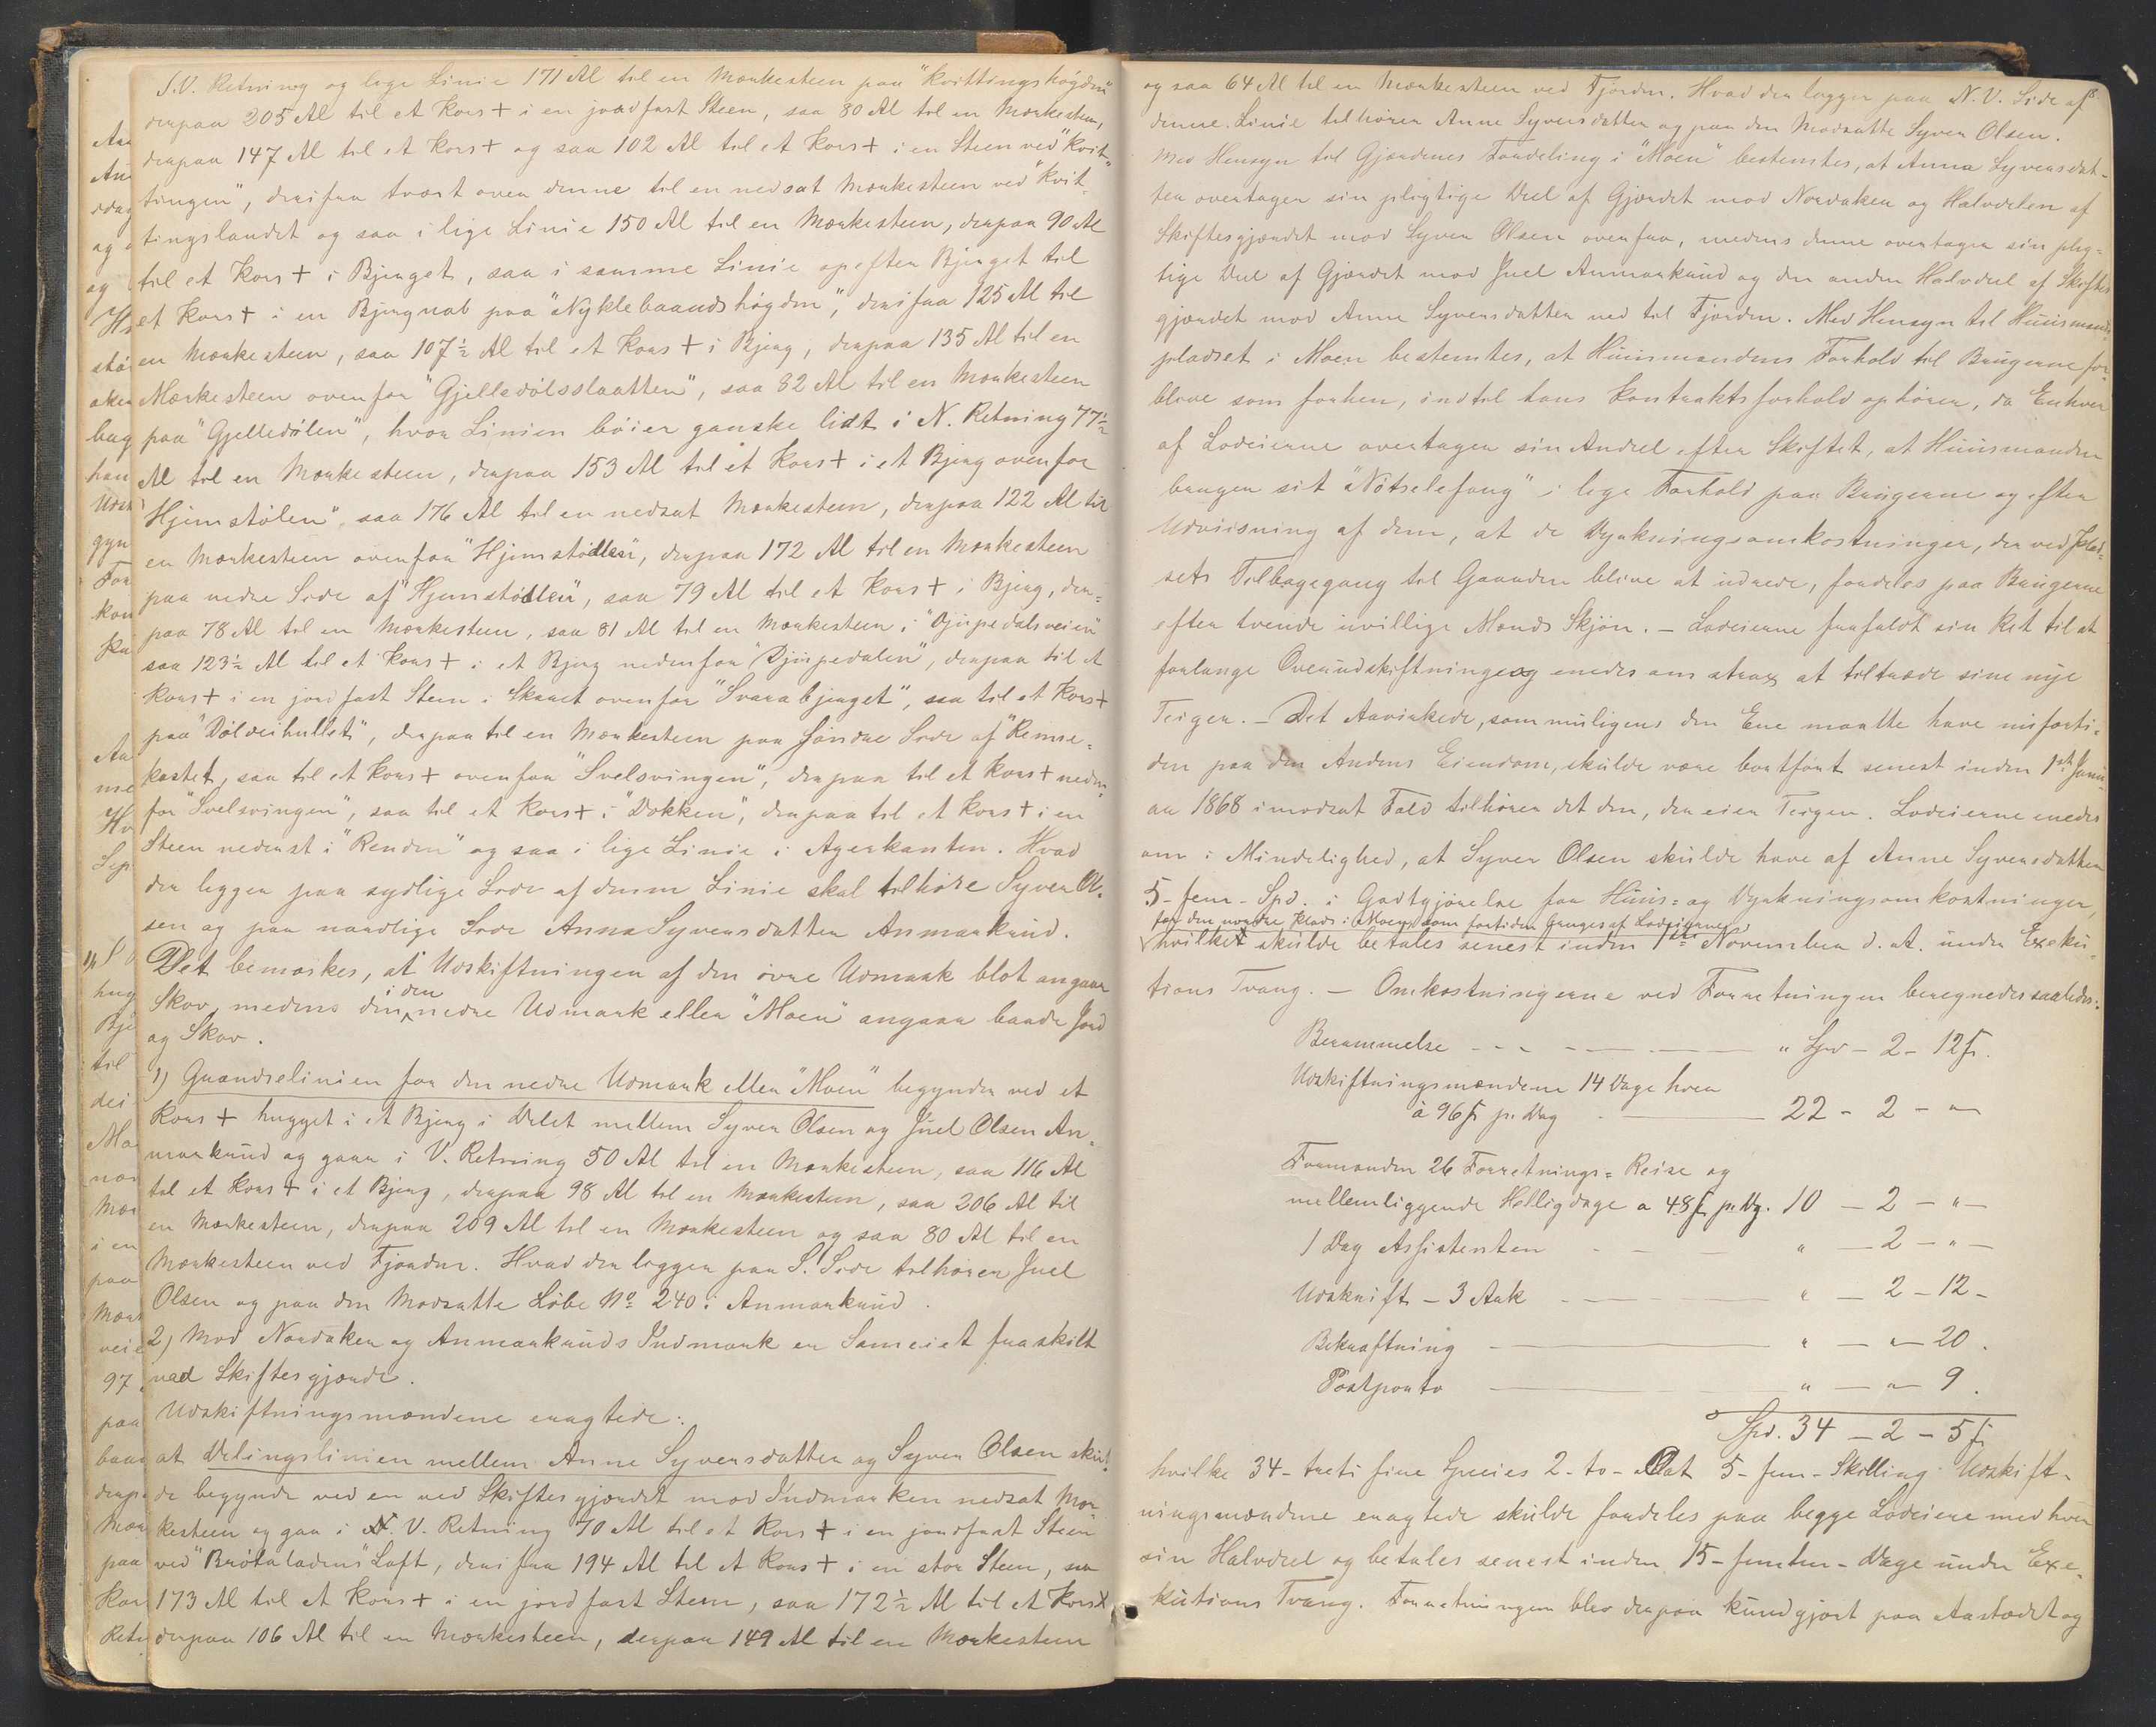 S.V. Retning og lige Linie 171 Al til en Mærkesteen paa "Kvittingshögden"
derpaa 205 Al til et Kors + i en jordfast Steen, saa 80 Al til en Mærkesteen,
derpaa 147 Al til et Kors + og saa 102 Al til et Kors + i en Steen ved "Kvit-
tingen", derifra tvært over denne til en nedsat Mærkesteen ved "Kvit-
tingslandet og saa i lige Linie 150 Al til en Mærkesteen, derpaa 90 Al
til et Kors + i Bjerget, saa i samme Linie opefter Bjerget til
et Kors + i en Bjergnab paa "Nyklebaandshögden", derifra 125 Al til
en Mærkesteen, saa 107½ Al til et Kors + i Bjerg, derpaa 135 Al til en
Mærkesteen ovenfor "Gjelledölsslaatten", saa 82 Al til en Mærkesteen
paa "Gjelledölen", hvor Linien böier ganske lidt i N. Retning 77½
Al til en Mærkesteen, derpaa 153 Al til et Kors + i et Bjerg ovenfor
"Hjemstölen" saa 176 Al til en nedsat Mærkesteen, derpaa 122 Al til
en Mærkesteen ovenfor "Hjemstödlen", derpaa 172 Al til en Mærkesteen
paa nedre Side af "Hjemstödlen", saa 79 Al til et Kors + i Bjerg, der-
paa 78 Al til en Mærkesteen, saa 81 Al til en Mærkesteen i "Djupedalsveien"
saa 123½ Al til et Kors + i et Bjerg nedenfor "Djupedalen", derpaa til et
Kors + i en jordfast Steen i Skaret ovenfor "Svarabjerget", saa til et Kors +
paa "Dölveihullet", derpaa til en Mærkesteen paa söndre Side af "Remse-
kastet, saa til et Kors + ovenfor "Svelsvingen", derpaa til et Kors + neden-
for "Svelsvingen", saa til et Kors + i "Dokken", derpaa til et Kors + i en
Steen nederst i "Renden" og saa i lige Linie i Agerkanten. Hvad
der ligger paa sydlige Side af denne Linie skal tilhöre Syver Ol-
sen og paa nordlige Side Anna Syversdatter Anmarkrud.
Det bemærkes, at Udskiftningen af den övre Udmark blot angaar
Skov, medens den i den nedre Udmark eller "Moen" angaar baade Jord
og Skov.
1) Grændselinien for den nedre Udmark eller "Moen" begynder ved et
Kors + hugget i et Bjerg i Delet mellem Syver Olsen og Juel Olsen An-
markrud og gaar i V. Retning 50 Al til en Mærkesteen, saa 116 Al
til et Kors + i et Bjerg, derpaa 98 Al til en Mærkesteen, saa 206 Al til
en Mærkesteen, derpaa 209 Al til en Mærkesteen og saa 80 Al til en
Mærkesteen ved Fjorden. Hvad der ligger paa S. Side tilhører Juel
Olsen og paa den Modsatte Löbe No 240 i Anmarkrud.
2) Mod Nordaker og Anmarkruds Indmark er Sameiet fraskilt
ved Skiftesgjærde.
Udskiftningsmændene eragtede:
at Delingslinien mellem Anne Syversdatter og Syver Olsen skul-
de begynde ved en ved Skiftesgjærdet mod Indmarken nedsat Mær-
kesteen og gaa i N. V. Retning 70 Al til et Kors + i en jordfast Steen
ved "Brötaladens" Loft, derifra 194 Al til et Kors + i en stor Steen, saa
173 Al til et Kors + i en jordfast Steen, saa 172½ Al til et Kors +
derpaa 106 Al til en Mærkesteen, derpaa 149 Al til en Mærkesteen
og saa 64 Al til en Mærkesteen ved Fjorden. Hvad der ligger paa N. V. Side af
denne Linie tilhører Anne Syversdatter og paa den Modsatte Syver Olsen.
Med Hensyn til Gjerdenes Fordeling i "Moen" bestemtes, at Anna Syversdat-
ter overtager sin pligtige Deel af Gjerdet mod Nordaker og Halvdelen af
Skiftesgjærdet mod Syver Olsen ovenfra, medens denne overtager sin plig-
tige Deel af Gjærdet mod Juel Anmarkrud og den anden Halvdeel af Skiftes-
gjærdet mod Anne Syversdatter ned til Fjorden. Med Hensyn til Huusmands-
pladset i Moen bestemtes, at Huusmandens Forhold til Brugerne for-
blive som forhen, indtil hans Kontraktsforhold ophörer, da Enhver
af Lodeierne overtager sin Andeel efter Skiftet, at Huusmanden
bruger sit "Nötselefang" i lige Forhold paa Brugerne og efter
Udviisning af dem, at de Dyrkningsomkostninger, der ved Plad-
sets Tilbagegang til Gaarden blive at udrede, fordeles paa Brugerne
efter tvende uvillige Mænds Skjön. — Lodeierne frafaldt sin Ret til at
forlange Overudskiftning og enedes om strax at tiltræde sine nye
Teiger. — Det Aavirkede, som muligens den Ene maatte have nuforti-
den paa den Andens Eiendom, skulde være bortfört senest inden 1ste Janu-
ar 1868 i modsat Fald tilhører det den, der eier Teigen. Lodeierne enedes
om i Mindelighed, at Syver Olsen skulde have af Anne Syversdatter
5 - fem - Spd. i Godtgjörelse for Huus- og Dyrkningsomkostninger,
for den nordre Plads i Moen, som fortiden bruges af Lodeierne
hvilket skulde betales senest inden 1ste November d. A. under Exeku-
tions Tvang. — Omkostningerne ved Forretningen beregnedes saaledes:
Berammelse - - - " Spd - 2 - 12 ß.
Udskiftningsmændene 14 Dage hver
à 96 ß pr. Dag - 22 - 2 - "
Formanden 26 Forretnings- Reise og
mellemliggende Helligdage a 48 ß pr. Dg. 10 - 2 - "
1 Dag Assistenten " - 2 - "
Udskrift - 3 Ark " - 2 - 12 -
Bekræftning " - " - 20.
Postporto " - " - 9.
Spd. 34 - 2 - 5 ß
hvilke 34 - treti fire Species 2 - to - Ort 5 - fem - Skilling Udskift-
ningsmændene eragtede skulde fordeles paa begge Lodeiere med hver
sin Halvdeel og betales senest inden 15 - femten - Dage under Exe-
kutions Tvang. Forretningen blev derpaa kundgjort paa Aastedet og